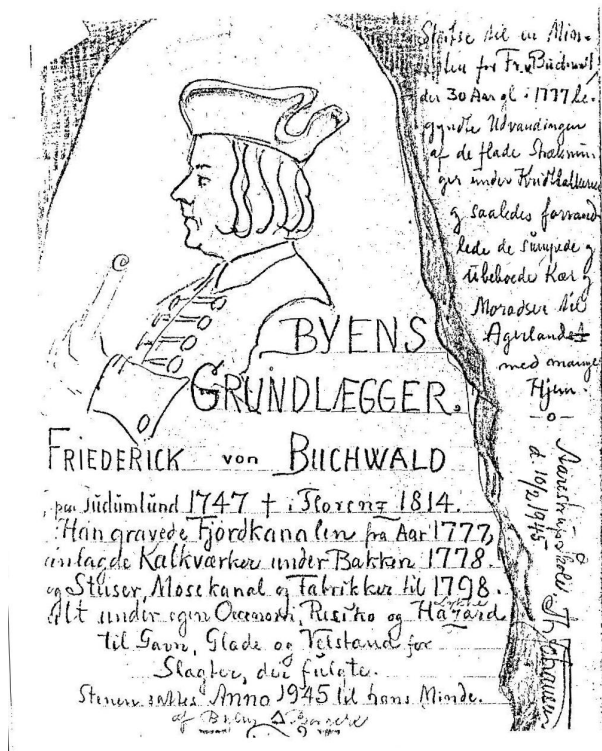 BYENS
GRUNDLÆGGER.
FRIEDERICK von BUCHWALD
paa Gudumlund 1747 † i Florenz 1814.
Han gravede Fjordkanalen fra Aar 1777,
anlagde Kalkværker under Bakken 1778.
og Sluser, Mosekanal og Fabrikker til 1798.
Alt under egen Risiko og Hazard
til Gavn, Glæde og Velstand for
Slægter, der fulgte.
Stenen sattes Anno 1945 til hans Minde.
af Byens Borgere
Skitse til en Min-
for Fr. v. Buchwald
der 30 Aar gl. i 1777 be-
gyndte Udvandingen
af de flade Stræknin
ger under Kridtbakkerne
og saaledes forvand
lede de sumpede og
ubeboede Kær og
Moradser til
Agerlandet
med mange
Hjem.
-o-
d. 10/2 1945